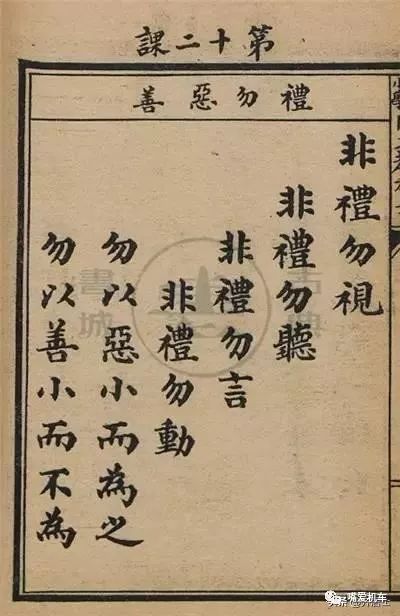 第十二課
禮勿惡善
非禮勿視
非禮勿聽
非禮勿言
非禮勿動
勿以惡小而為之
勿以善小而不為
古典
書城
嘴爱机车